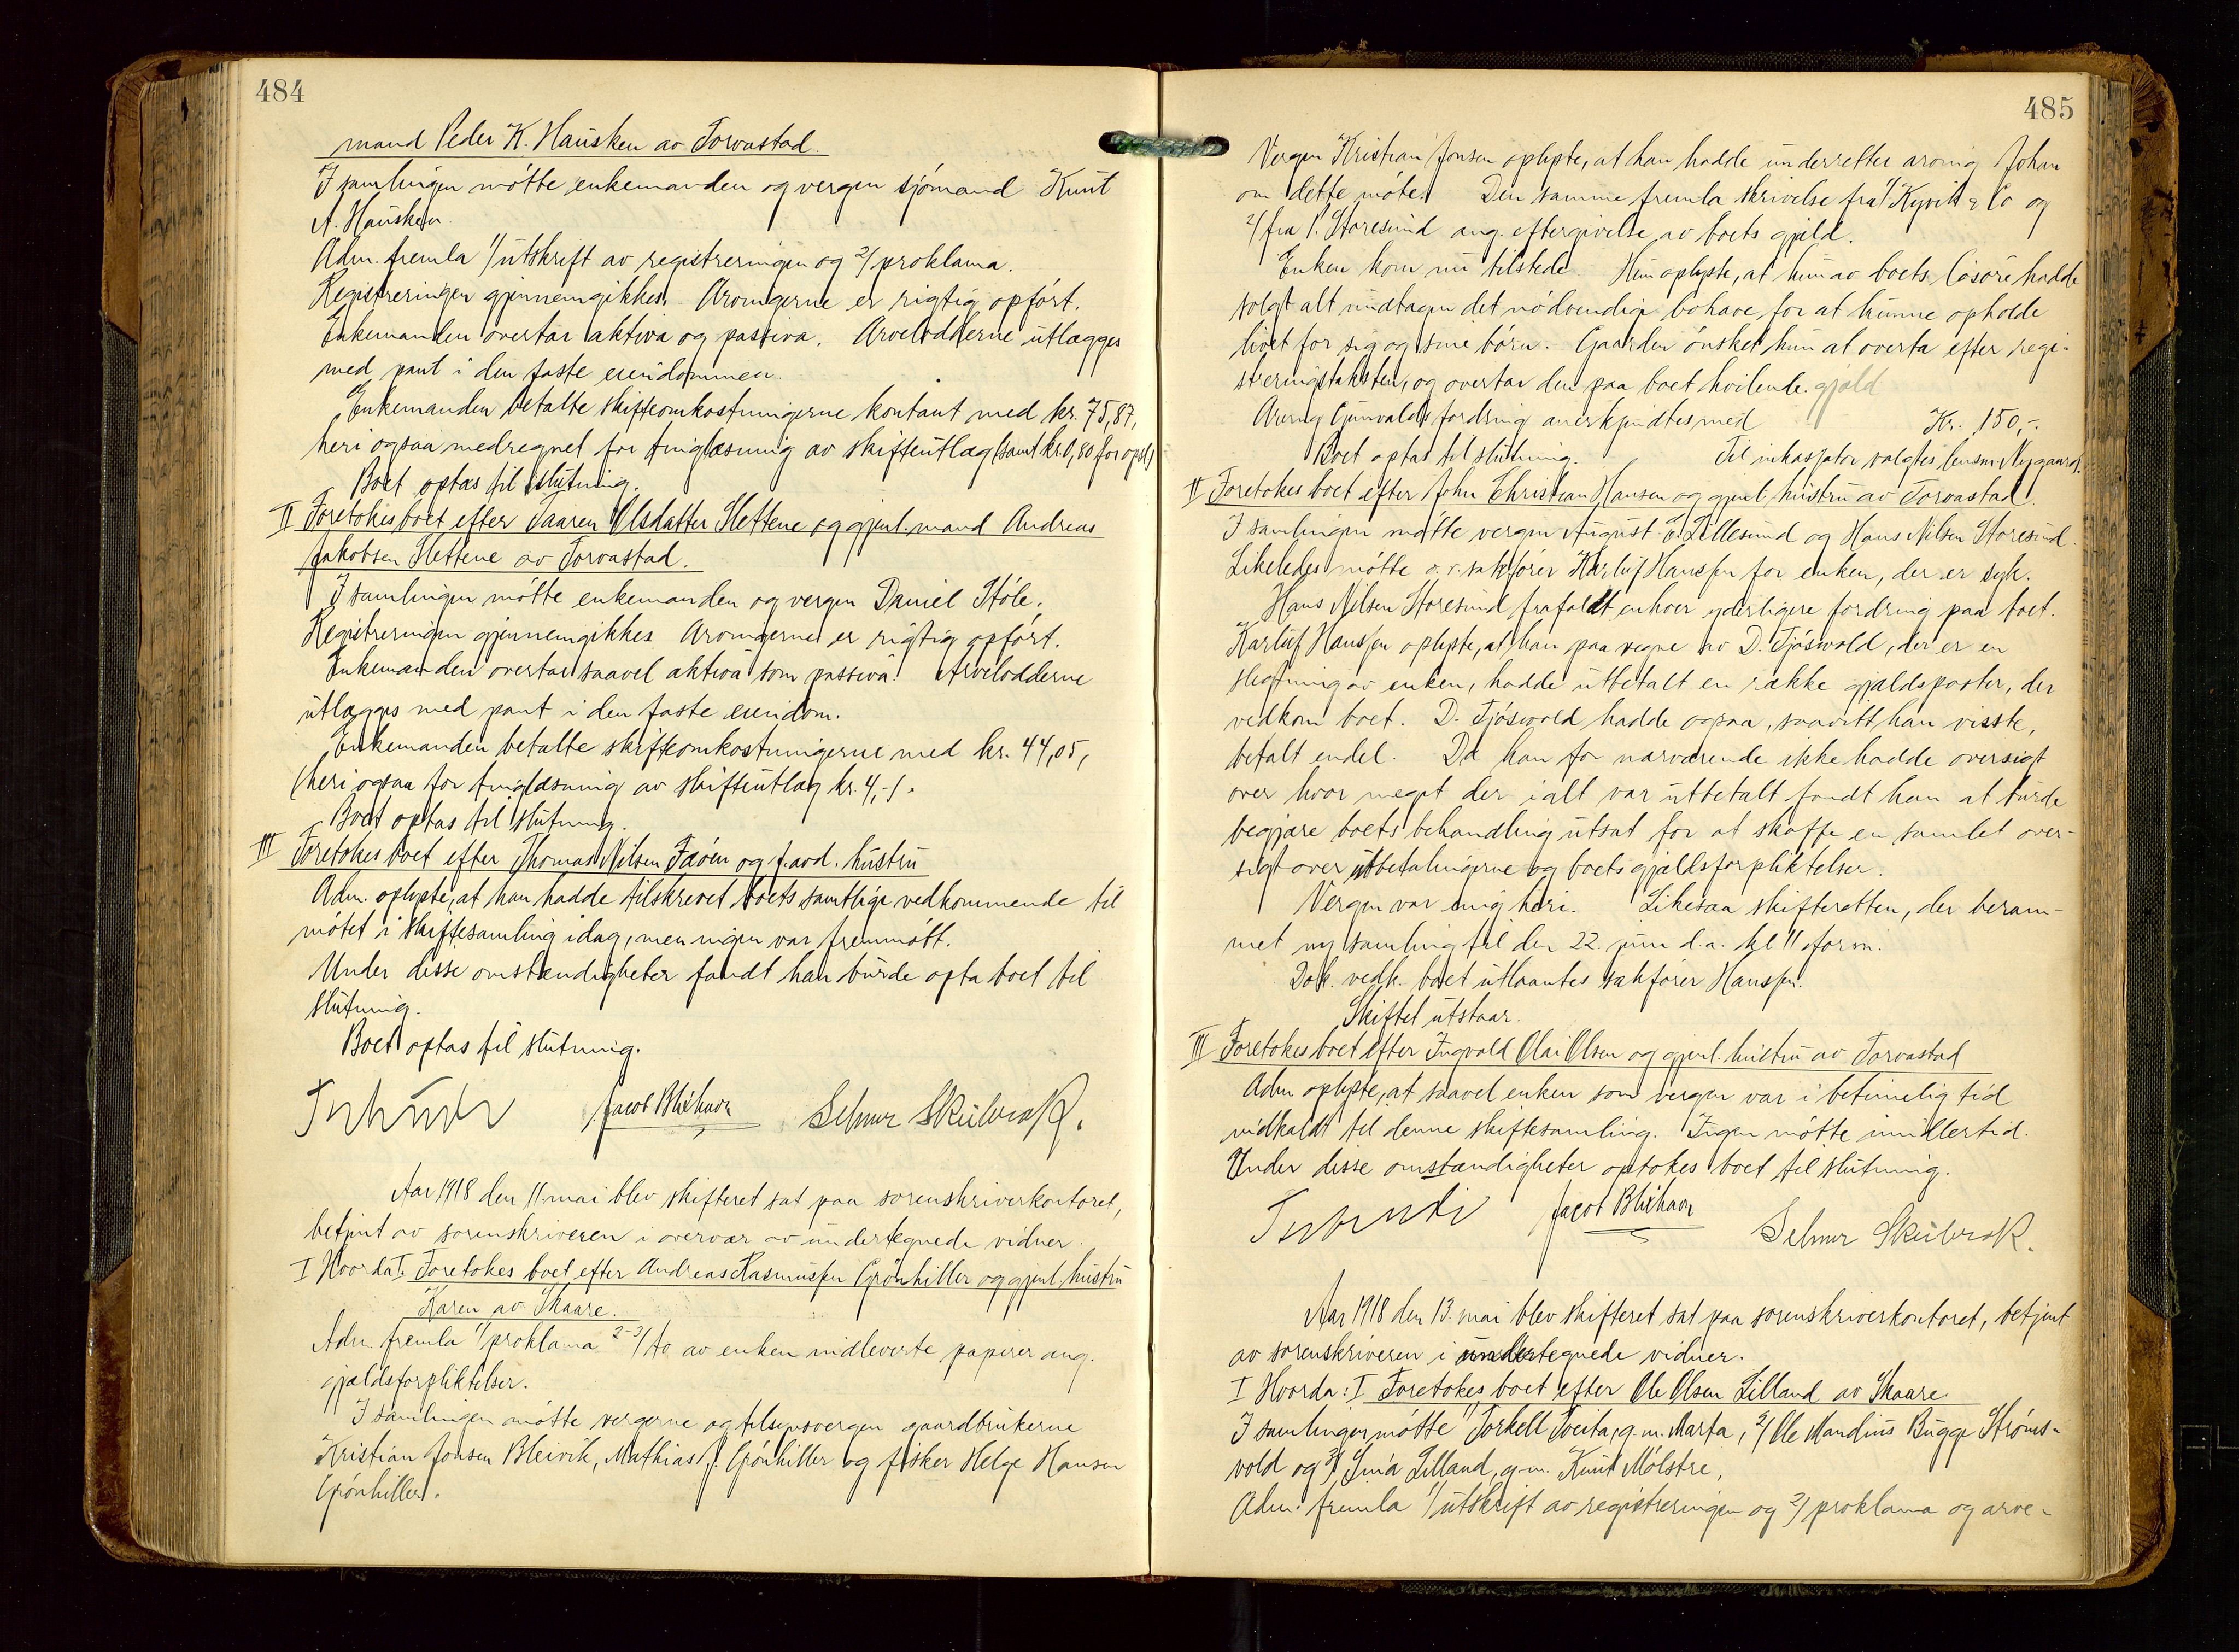 484
mand Peder K. Hausken av Torvastad.
I samlingen møtte enkemanden og vergen sjømand Knut
A. Hausken.
Adm. fremla 1/ utskrift av registreringen og 2/ proklama.
Registreringen gjennemgikkes. Arvingerne er rigtig opført.
Enkemanden overtar aktiva og passiva. Arvelodderne utlægges
med pant i den faste eiendommen.
Enkemanden betalte skifteomkostningerne kontant med kr. 75,87,
heri ogsaa medregnet for tinglæsning av skifteutlæg (samt kr. 0,80 for
Boet optas til slutning.
II Foretokes boet efter Taaren Olsdatter Slettene og gjenl. mand Andreas
Jakobsen Slettene av Torvastad.
I samlingen møtte enkemanden og vergen Daniel Støle.
Registreringen gjennemgikkes. Arvingerne er rigtig opført.
Enkemanden overtar saavel aktiva som passiva. Arvelodderne
utlægges med pant i den faste eiendom.
Enkemanden betalte skifteomkostningerne med kr. 44,05,
(heri ogsaa for tinglæsning av skifteutlæg kr. 4,-).
Boet optas til slutning.
III Foretokes boet efter Thomas Nilsen Feøen og f. avd. hustru
Adm. oplyste, at han hadde tilskrevet boets samtlige vedkommende til
møtet i skiftesamling idag, men ingen var fremmøtt.
Under disse omstændigheter fandt han burde opta boet til
slutning.
Boet optas til slutning.
Jacob Blikhavn Selmer Skeibrok.
Aar 1918 den 11. mai blev skifteret sat paa sorenskriverkontoret,
betjent av sorenskriveren i overvær av undertegnede vidner.
I Hvorda: I. Foretokes boet efter Andreas Rasmussen Grønhiller og gjenl. hustru
Karen av Skaare.
Adm. fremla 1/ proklama 2-3/ to av enken indleverte papirer ang.
gjældsforpliktelser.
I samlingen møtte vergerne og tilsynsvergen gaardbrukerne
Kristian Jonsen Bleivik, Mathias J. Grønhiller og fisker Helge Hansen
Grønhiller.
485
Vergen Kristian Jonsen oplyste, at han hadde underrettet arving Johan
om dette møte. Den samme fremla skrivelse fra 1/ Kyvik & Co og
2/ fra P. Storesund ang. eftergivelse av boets gjæld.
Enken kom nu tilstede. Hun oplyste, at hun av boets løsøre hadde
solgt alt undtagen det nødvendige bohave for at kunne opholde
livet for sig og sine børn. Gaarden ønsket hun at overta efter regi-
streringstaksten, og overtar den paa boet hvilende gjæld
Arving Gunvalds fordring anerkjendtes med Kr. 150,-.
Boet optas til slutning. Til inkassator valgtes lensm. Nygaard.
II Foretokes boet efter John Christian Hansen og gjenl. hustru av Torvastad.
I samlingen møtte vergen August E. Lillesund og Hans Nilsen Storesund.
Likeledes møtte o.r. sakfører Karluf Hanssen for enken, der er syk.
Hans Nilsen Storesund frafaldt enhver yderligere fordring paa boet.
Karluf Hanssen oplyste, at han paa vegne av D. Tjøsvold, der er en
slegtning av enken, hadde utbetalt en række gjældsposter, der
vedkom boet. D. Tjøsvold hadde ogsaa, saavitt han visste,
betalt endel. Da han for nærværende ikke hadde oversigt
over hvor meget der i alt var utbetalt fandt han at burde
begjære boets behandling utsat for at skaffe en samlet over-
sigt over utbetalingerne og boets gjældsforpliktelser.
Vergen var enig heri. Likesaa skifteretten, der beram-
met ny samling til den 22. juni d.a. kl 11 form.
Dok. vedk. boet utlaantes sakfører Hanssen.
Skiftet utstaar.
III Foretokes boet efter Ingvald Olai Olsen og gjenl. hustru av Torvastad
Adm oplyste, at saavel enken som vergen var i betimelig tid
indkaldt til denne skiftesamling. Ingen møtte imidlertid.
Under disse omstændigheter optokes boet til slutning.
Jacob Blikhavn Selmer Skeibrok.
Aar 1918 den 13. mai blev skifteret sat paa sorenskriverkontoret, betjent
av sorenskriveren i undertegnede vidner.
I Hvorda: I Foretokes boet efter Ole Olsen Lilland av Skaare
I samlingen møtte 1/ Torkell Tveita, g. m. Marta, 2/ Ole Mandius Bugge Strøms-
vold og 3/ Lina Lilland, g. m. Knut Mølstre,
Adm. fremla 1/ utskrift av registreringen og 2/ proklama og arve-